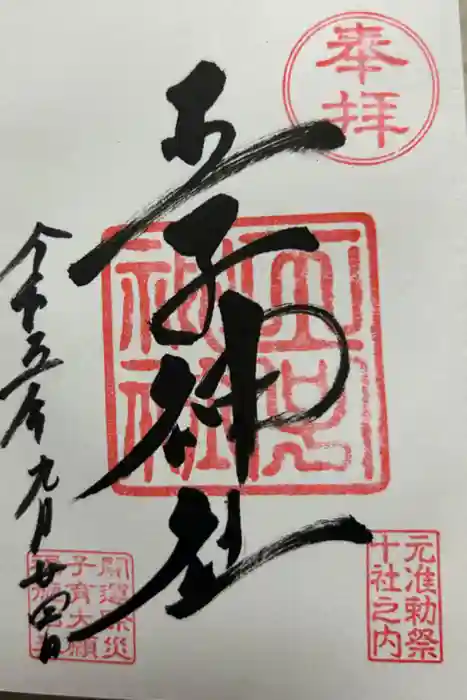 奉拝
王子神社
王子
神社
元准勅祭
十社之内
令和五年九月廿四日
開運除災
子育大願